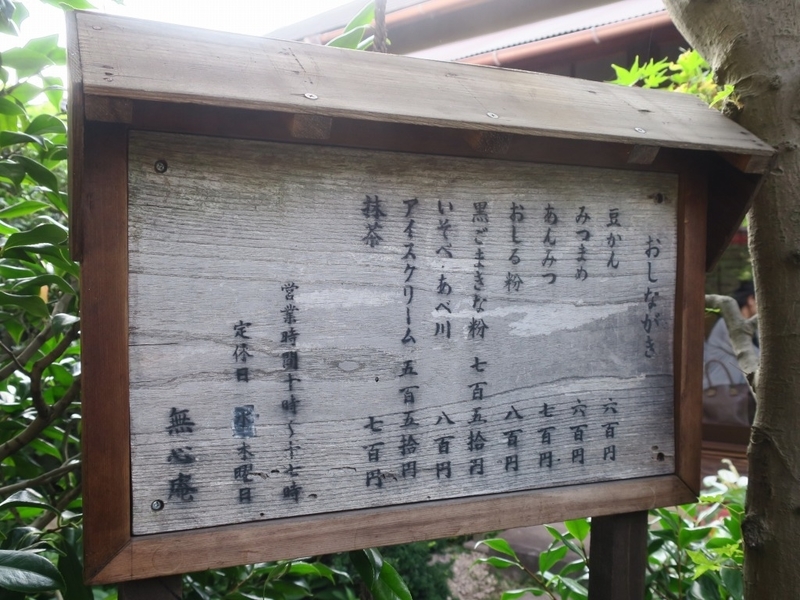 おしながき
豆かん 六百円
みつまめ 六百円
あんみつ 七百円
おしる粉 八百円
黒ごまきな粉 七百五拾円
いそべ・あべ川 八百円
アイスクリーム 五百五拾円
抹茶 七百円
営業時間十時～十七時
定休日 木曜日
無心庵